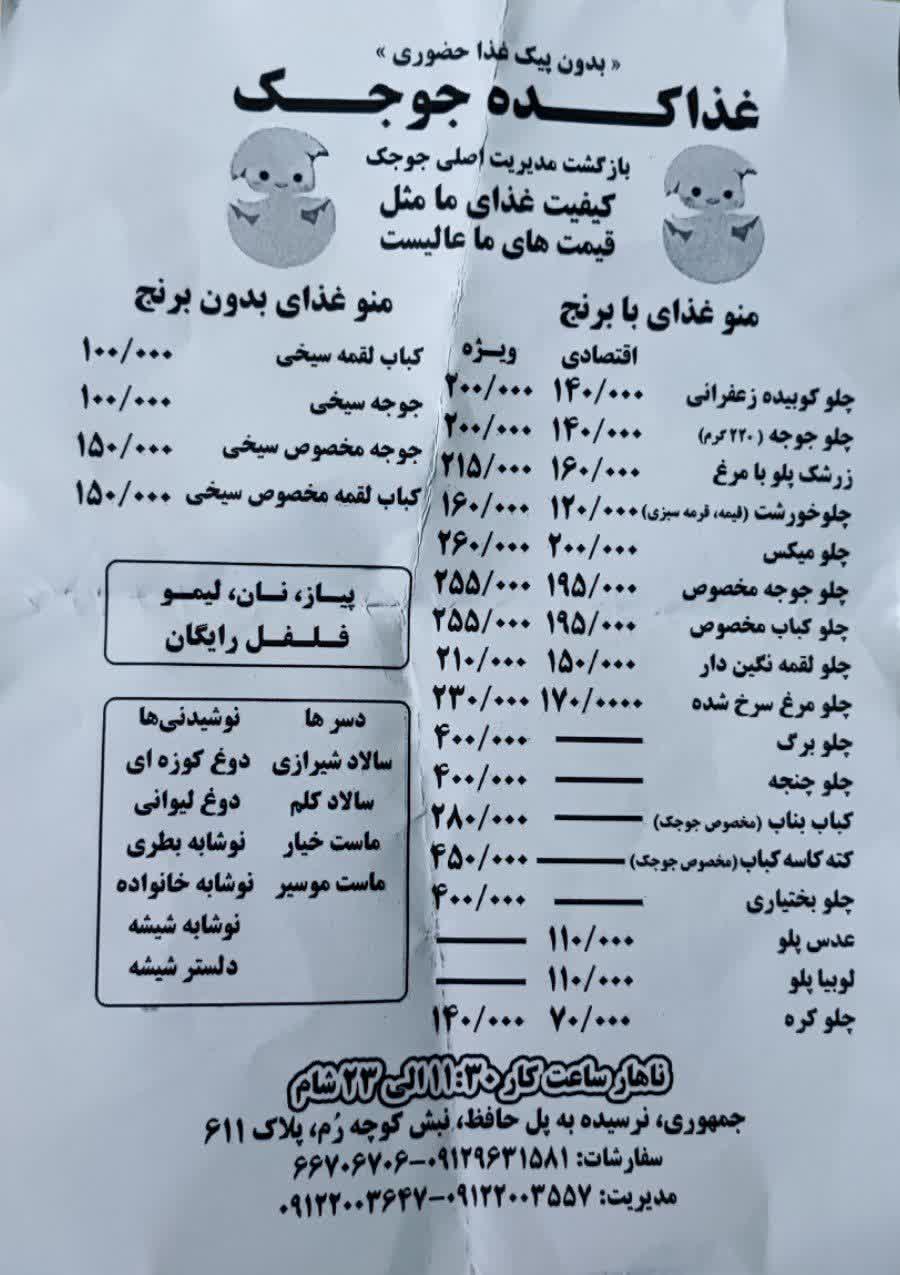 « بدون پیک غذا حضوری »
غذاکده جوجک
بازگشت مدیریت اصلی جوجک
کیفیت غذای ما مثل
قیمت های ما عالیست
منو غذای با برنج
اقتصادی ویژه
چلو کوبیده زعفرانی ۱۴۰/۰۰۰ ۲۰۰/۰۰۰
چلو جوجه (۲۲۰ گرم) ۱۴۰/۰۰۰ ۲۰۰/۰۰۰
زرشک پلو با مرغ ۱۶۰/۰۰۰ ۲۱۵/۰۰۰
چلوخورشت (قیمه، قرمه سبزی) ۱۲۰/۰۰۰ ۱۶۰/۰۰۰
چلو میکس ۲۰۰/۰۰۰ ۲۶۰/۰۰۰
چلو جوجه مخصوص ۱۹۵/۰۰۰ ۲۵۵/۰۰۰
چلو کباب مخصوص ۱۹۵/۰۰۰ ۲۵۵/۰۰۰
چلو لقمه نگین دار ۱۵۰/۰۰۰ ۲۱۰/۰۰۰
چلو مرغ سرخ شده ۱۷۰/۰۰۰۰ ۲۳۰/۰۰۰
چلو برگ —— ۴۰۰/۰۰۰
چلو چنجه —— ۴۰۰/۰۰۰
کباب بناب (مخصوص جوجک) —— ۲۸۰/۰۰۰
کته کاسه کباب (مخصوص جوجک) —— ۴۵۰/۰۰۰
چلو بختیاری —— ۴۰۰/۰۰۰
عدس پلو ۱۱۰/۰۰۰ ——
لوبیا پلو ۱۱۰/۰۰۰ ——
چلو کره ۷۰/۰۰۰ ۱۴۰/۰۰۰
منو غذای بدون برنج
کباب لقمه سیخی ۱۰۰/۰۰۰
جوجه سیخی ۱۰۰/۰۰۰
جوجه مخصوص سیخی ۱۵۰/۰۰۰
کباب لقمه مخصوص سیخی ۱۵۰/۰۰۰
پیاز، نان، لیمو
فلفل رایگان
دسر ها نوشیدنی‌ها
سالاد شیرازی دوغ کوزه ای
سالاد کلم دوغ لیوانی
ماست خیار نوشابه بطری
ماست موسیر نوشابه خانواده
نوشابه شیشه
دلستر شیشه
ناهار ساعت کار ۱۱:۳۰ الی ۲۳ شام
جمهوری، نرسیده به پل حافظ، نبش کوچه رُم، پلاک ۶۱۱
سفارشات: ۰۹۱۲۹۶۳۱۵۸۱-۶۶۷۰۶۷۰۶
مدیریت: ۰۹۱۲۲۰۰۳۵۵۷-۰۹۱۲۲۰۰۳۶۴۷